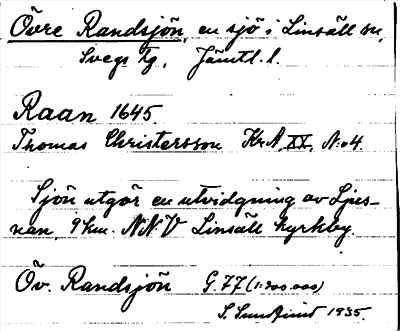 Övre Randsjön, en sjö i Linsäll sn,
Svegs tg, Jämtl. l.
Raan 1645.
Thomas Christersson Kr A XX, N:o 4.
Sjön utgör en utvidgning av Ljus-
nan, 9 km. N.N.V Linsäll kyrkby.
Öv. Randsjön G. 77 (1:200.000)
S. 1935.